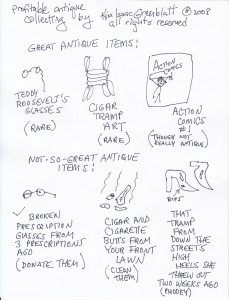 profitable antique
collecting by Kim Isaac Greenblatt © 2008
all rights reserved
GREAT ANTIQUE ITEMS:
TEDDY
ROOSEVELT'S
GLASSES
(RARE)
CIGAR
TRAMP
ART
(RARE)
ACTION
COMICS
ACTION
COMICS
#1
(THOUGH NOT
REALLY ANTIQUE)
NOT-SO-GREAT ANTIQUE
ITEMS:
BROKEN
PRESCRIPTION
GLASSES FROM
3 PRESCRIPTIONS
AGO
(DONATE THEM)
CIGAR AND
CIGARETE
BUTTS FROM
YOUR FRONT
LAWN
(CLEAN
THEM)
THAT
TRAMP
FROM
DOWN THE
STREETS
HIGH
HEELS SHE
THREW OUT
TWO WEEKS AGO
(PHOOEY)